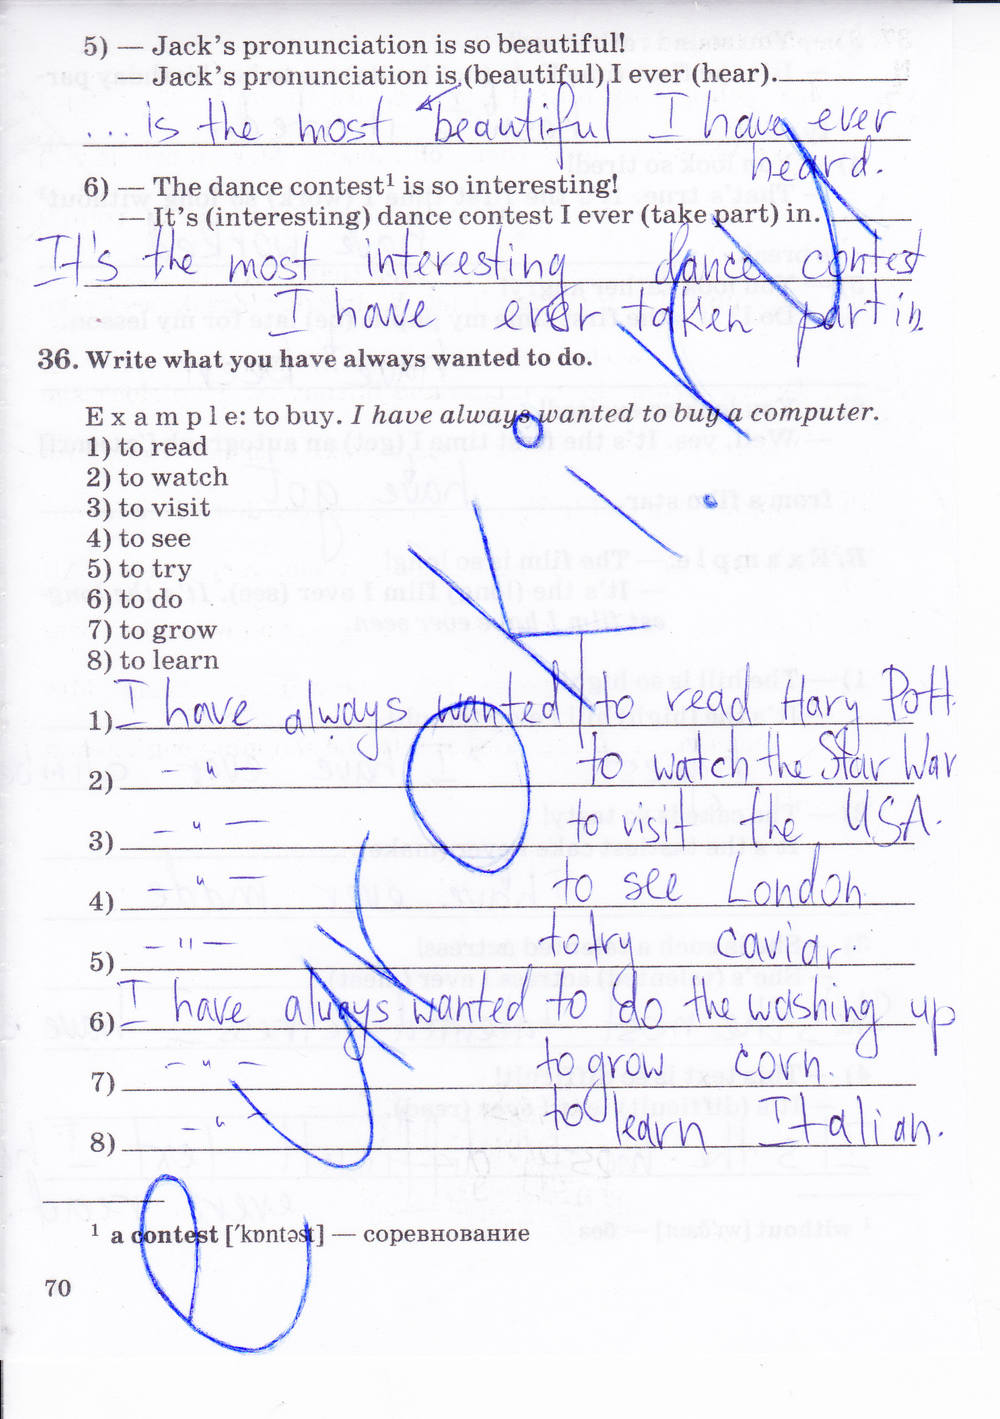 5) — Jack's pronunciation is so beautiful!
— Jack's pronunciation is (beautiful) I ever (hear).
... is the most beautiful I have ever
heard.
6) — The dance contest¹ is so interesting!
— It's (interesting) dance contest I ever (take part) in.
It's the most interesting dance contest
I have ever taken part in
36. Write what you have always wanted to do.
Example: to buy. I have always wanted to buy a computer.
1) to read
2) to watch
3) to visit
4) to see
5) to try
6) to do
7) to grow
8) to learn
1) I have always wanted to read Hary Pott.
2) —"— to watch the Star War
3) —"— to visit the USA.
4) —"— to see London
5) —"— to try caviar
6) I have always wanted to do the washing up
7) —"— to grow corn.
8) —"— to learn Italian.
¹ a contest [ˈkɒntəst] — соревнование
70